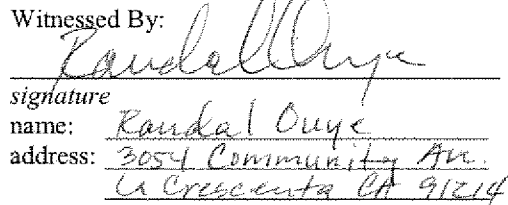 Witnessed By:
Randal Ouye
signature
name: Randal Ouye
address: 3054 Community Av.
La Crescenta CA 91214